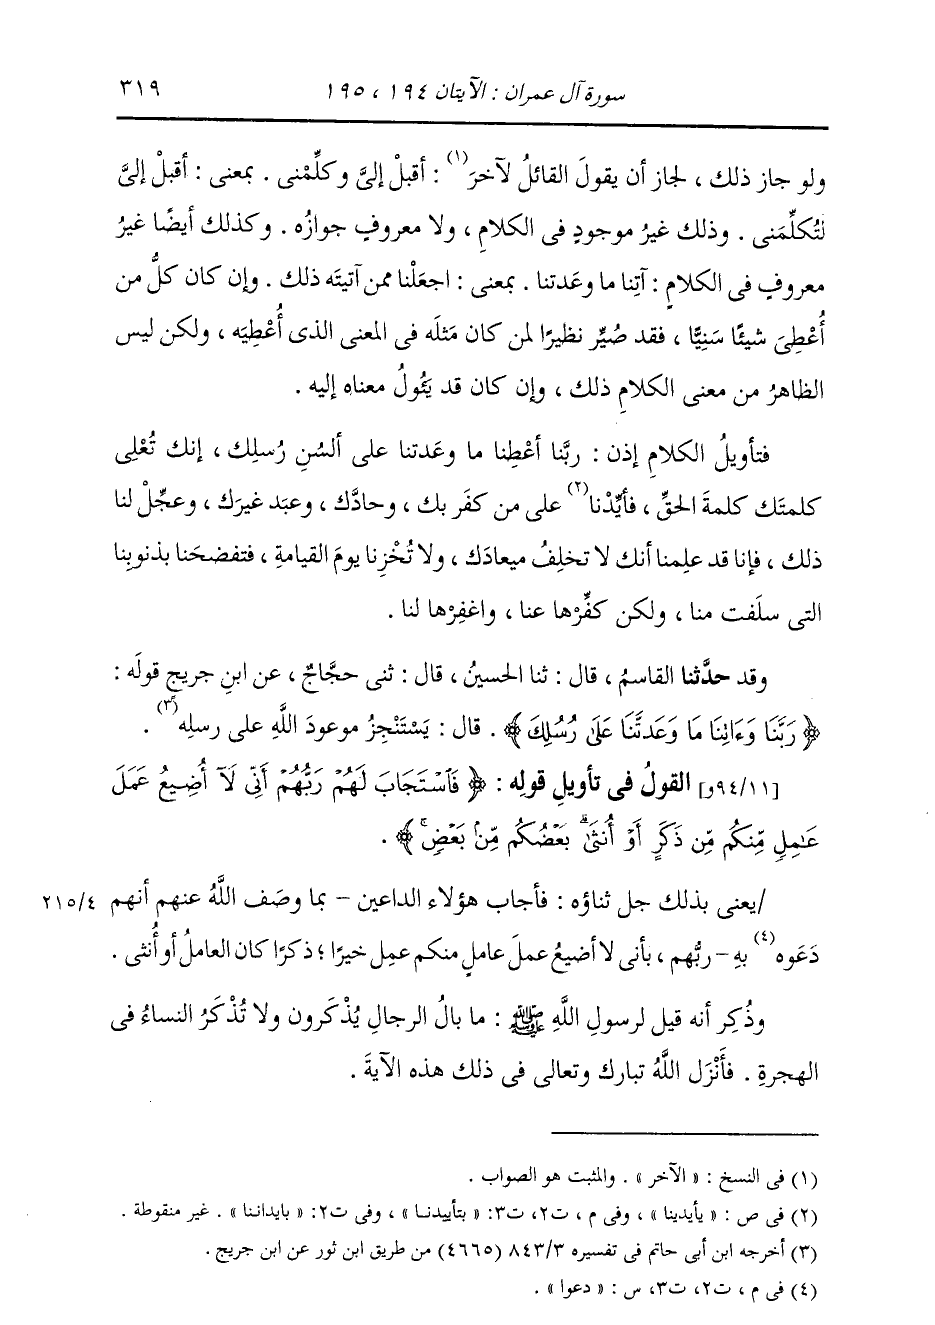 سورة آل عمران : الآيتان ١٩٤ ، ١٩٥ ٣١٩
ولو جاز ذلك ، لجاز أن يقولَ القائلُ لآخرَ(١) : أقبلْ إلىَّ وكلِّمْنى . بمعنى : أقبلْ إلىَّ
لتُكلِّمَنى . وذلك غيرُ موجودٍ فى الكلامِ ، ولا معروفٍ جوازُه . وكذلك أيضًا غيرُ
معروفٍ فى الكلامِ : آتِنا ما وعَدتنا . بمعنى : اجعَلْنا ممن آتيتَه ذلك . وإن كان كلُّ من
أُعْطِىَ شيئًا سَنِيًّا ، فقد صُيِّر نظيرًا لمن كان مَثلَه فى المعنى الذى أُعْطِيَه ، ولكن ليس
الظاهرُ من معنى الكلامِ ذلك ، وإن كان قد يَئُولُ معناه إليه .
فتأويلُ الكلامِ إذن : ربَّنا أعْطِنا ما وعَدتنا على ألسُنِ رُسلِك ، إنك تُعْلِى
كلمتَك كلمةَ الحقِّ ، فأيِّدْنا(٢) على من كفَر بك ، وحادَّك ، وعبَد غيرَك ، وعجِّلْ لنا
ذلك ، فإنا قد علِمنا أنك لا تخلِفُ ميعادَك ، ولا تُخْزِنا يومَ القيامةِ ، فتفضحَنا بذنوبِنا
التى سلَفت منا ، ولكن كفِّرْها عنا ، واغفِرْها لنا .
وقد حدَّثنا القاسمُ ، قال : ثنا الحسينُ ، قال : ثنى حجَّاجٌ ، عن ابنِ جريجٍ قولَه :
﴿ رَبَّنَا وَءَانِنَا مَا وَعَدتَّنَا عَلَىٰ رُسُلِكَ ﴾ . قال : يَسْتَنْجِزُ موعودَ اللَّهِ على رسلِه(٣) .
[٩٤/١١و] القولُ فى تأويلِ قولِه : ﴿ فَٱسْتَجَابَ لَهُمْ رَبُّهُمْ أَنِّى لَآ أُضِيعُ عَمَلَ
عَـٰمِلٍ مِّنكُم مِّن ذَكَرٍ أَوْ أُنثَىٰ ۖ بَعْضُكُم مِّنۢ بَعْضٍ ۚ ﴾ .
/يعنى بذلك جل ثناؤه : فأجاب هؤلاء الداعين - بما وصَف اللَّهُ عنهم أنهم ٢١٥/٤
دَعَوه(٤) بهِ - ربُّهم ، بأنى لا أضيعُ عملَ عاملٍ منكم عمِل خيرًا ؛ ذكرًا كان العاملُ أو أُنثى .
وذُكِر أنه قيل لرسولِ اللَّهِ ﷺ : ما بالُ الرجالِ يُذْكَرون ولا تُذْكَرُ النساءُ فى
الهجرةِ . فأَنْزَل اللَّهُ تبارك وتعالى فى ذلك هذه الآيةَ .
(١) فى النسخ : « الآخر » . والمثبت هو الصواب .
(٢) فى ص : « يأيدينا » ، وفى م ، ت٢، ت٣: « بتأييدنـا » ، وفى ت٢: « بايداننا » . غير منقوطة .
(٣) أخرجه ابن أبى حاتم فى تفسيره ٨٤٣/٣ (٤٦٦٥) من طريق ابن ثور عن ابن جريج .
(٤) فى م ، ت٢، ت٣، س : « دعوا » .